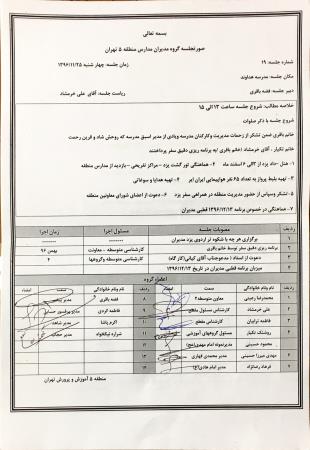 بسمه تعالی
صورتجلسه گروه مدیران مدارس منطقه ۵ تهران
شماره جلسه: ۱۹
زمان جلسه: چهار شنبه ۱۳۹۶/۱۱/۲۵
مکان جلسه: مدرسه هداوند
دبیر جلسه: فضه باقری
ریاست جلسه: آقای علی خرمشاد
خلاصه مطالب: شروع جلسه ساعت ۱۳ الی ۱۵
شروع جلسه با ذکر صلوات
خانم باقری ضمن تشکر از زحمات مدیریت وکارکنان مدرسه ویادی از مدیر اسبق مدرسه که روحش شاد و قرین رحمت
خانم تکیار، آقای خرمشاد (خانم باقری) به برنامه ریزی دقیق سفر پرداختند
۱- هتل - داد یزد از گلی ۶ اسفند ماه ۲- هماهنگی تور گشت یزد - مراکز تفریحی - بازدید از مدارس منطقه
۳- تهیه بلیط پرواز به تعداد ۶۵ نفر هواپیمایی ایران ایر ۴- تهیه هدایا و سوغاتی
۵- تشکر وسپاس از حضور مدیریت منطقه در همراهی سفر یزد ۶- دعوت از اعضای شورای معاونین منطقه
۷- هماهنگی در خصوص برنامه ۱۳۹۶/۱۲/۱۳ قطبی مدیران
ردیف مصوبات جلسه مسئول اجرا زمان اجرا
۱ برگزاری هر چه با شکوه تر اردوی یزد مدیران ------- -------
۲ برنامه ریزی دقیق سفر توسط خانم باقری کارشناسی متوسطه - معاونت بهمن ۹۶
۳ دعوت از استاد مدعو جناب آقای کیانی (کارگاه) کارشناسی متوسطه وگروهها ۲
۴ میزبان برنامه قطبی مدیران در تاریخ ۱۳۹۶/۱۲/۱۳
اعضاء گروه
ردیف نام ونام خانوادگی سمت امضاء ردیف نام ونام خانوادگی سمت امضاء
۱ محمدرضا رجبی معاون متوسطه ۲ ۸ فضه باقری مدیر
۲ علی خرمشاد کارشناس مسئول مقطع ۹ فاطمه کردی مدیر پرفسور حسابی
۳ فاطمه ترابیان کارشناس مقطع ۱۰ اکرم پاشا مدیر شاهد
۴ روشنک تکیار مسئول گروههای آموزشی ۱۱ شراره نیکخواه مدیر
۵ محمود حسینی مدیر نمونه امام مهدی(عج) ۱۲
۶ مهدی میرزا حسینی مدیر محمدی قهاری ۱۳
۷ فرهاد رضانژاد مدیر امام هادی(ع) ۱۴
منطقه ۵ آموزش و پرورش تهران